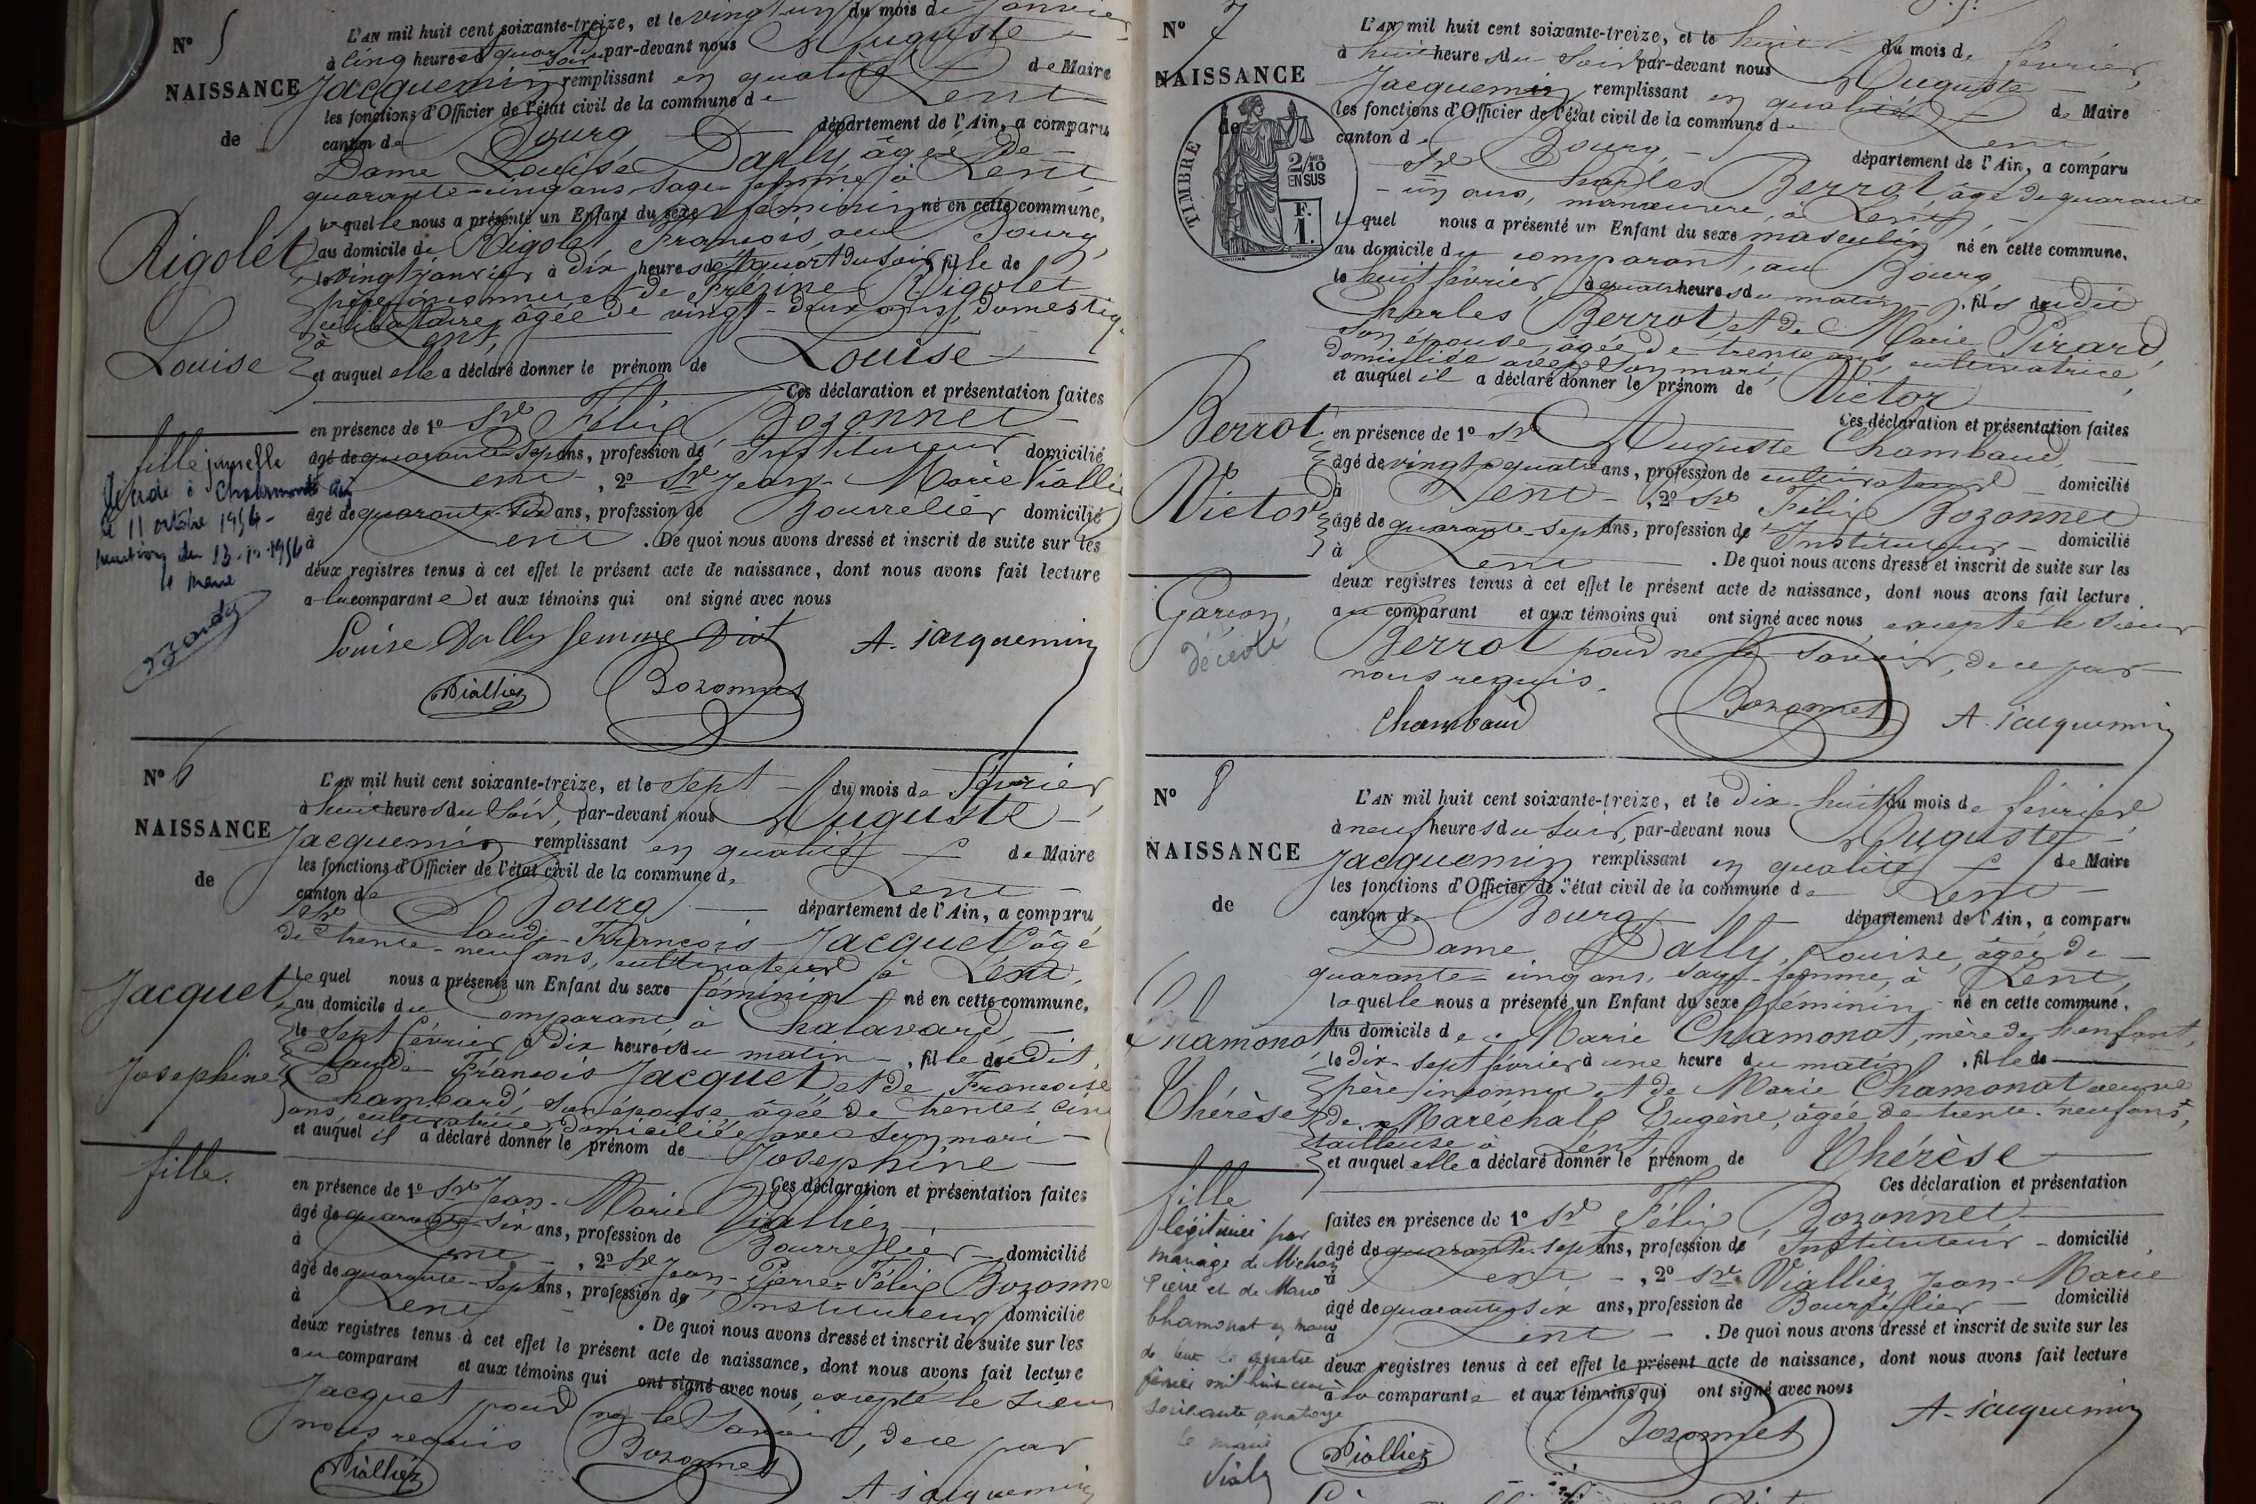 N° 5
NAISSANCE
de
Rigolet
Louise
fille jumelle
le 11 octobre 1954
mention du 13-10-1954
le maire
L'AN mil huit cent soixante-treize, et le vingt un du mois de Janvier
à cinq heures du soir par-devant nous Auguste
Jacquemin remplissant en qualité de Maire
les fonctions d'Officier de l'état civil de la commune de Lent
canton de Bourg département de l'Ain, a comparu
Dame Louise Dally, âgée de
quarante-cinq ans, sage-femme à Lent
laquelle nous a présenté un Enfant du sexe féminin né en cette commune,
au domicile de Rigolet François, au Bourg,
le vingt janvier à dix heures et quart du soir, fille de
père inconnu et de Rigolet
célibataire, âgée de vingt-deux ans, domestiq.
à Lent,
et auquel elle a déclaré donner le prénom de Louise
Ces déclaration et présentation faites
en présence de 1° Sr Félix Bozonnet
âgé de quarante-sept ans, profession de Instituteur domicilié
à Lent, 2° Sr Jean-Marie Viallie
âgé de quarante-six ans, profession de Bourrelier domicilié
à Lent. De quoi nous avons dressé et inscrit de suite sur les
deux registres tenus à cet effet le présent acte de naissance, dont nous avons fait lecture
a la comparante et aux témoins qui ont signé avec nous
Louise Dally femme Diot A. Jacquemin
Vialliez Bozonnet
N° 6
NAISSANCE
de
Jacquet
Josephine
fille.
L'AN mil huit cent soixante-treize, et le sept du mois de Février
à huit heures du soir, par-devant nous Auguste
Jacquemin remplissant en qualité de Maire
les fonctions d'Officier de l'état civil de la commune de Lent
canton de Bourg département de l'Ain, a comparu
le Sr Claude-François Jacquet âgé
de trente-neuf ans, cultivateur à Lent,
le quel nous a présenté un Enfant du sexe féminin né en cette commune,
au domicile du comparant, à Chalavard,
le sept février à dix heures du matin, fille dudit
Claude François Jacquet et de Françoise
Chambard, son épouse âgée de trente-cinq
ans, cultivatrice, domiciliée avec son mari
et auquel il a déclaré donner le prénom de Josephine
Ces déclaration et présentation faites
en présence de 1° Sr Jean-Marie Vialliez
âgé de quarante-six ans, profession de Bourrelier domicilié
à Lent, 2° Sr Jean-Pierre-Félix Bozonne
âgé de quarante-sept ans, profession de Instituteur domicilié
à Lent. De quoi nous avons dressé et inscrit de suite sur les
deux registres tenus à cet effet le présent acte de naissance, dont nous avons fait lecture
au comparant et aux témoins qui ont signé avec nous, excepté le sieur
Jacquet pour ne le savoir, de ce par
nous requis
Vialliez Bozonnet A. Jacquemin
N° 7
NAISSANCE
de
TIMBRE
2/10
EN SUS
F.
1.
Berrot
Victor
Garçon,
décédé
L'AN mil huit cent soixante-treize, et le huit du mois de février,
à huit heures du soir par-devant nous Auguste
Jacquemin remplissant en qualité de Maire
les fonctions d'Officier de l'état civil de la commune de Lent,
canton de Bourg, département de l'Ain, a comparu
Sr Charles Berrot, âgé de quarante
-un ans, manœuvre, à Lent,
lequel nous a présenté un Enfant du sexe masculin né en cette commune,
au domicile du comparant, au Bourg,
le huit février à quatre heures du matin, fils dudit
Charles Berrot, et de Marie Pirard,
son épouse, âgée de trente ans, cultivatrice,
domiciliée avec son mari,
et auquel il a déclaré donner le prénom de Victor
Ces déclaration et présentation faites
en présence de 1° Sr Auguste Chambaud,
âgé de vingt-quatre ans, profession de cultivateur domicilié
à Lent, 2° Sr Félix Bozonnet
âgé de quarante-sept ans, profession de Instituteur domicilié
à Lent. De quoi nous avons dressé et inscrit de suite sur les
deux registres tenus à cet effet le présent acte de naissance, dont nous avons fait lecture
au comparant et aux témoins qui ont signé avec nous, excepté le sieur
Berrot pour ne le savoir, de ce par
nous requis.
Chambaud Bozonnet A. Jacquemin
N° 8
NAISSANCE
de
Chamonat
Thérèse
fille
légitimée par
mariage de Michon
Pierre et de Marie
Chamonat en mairie
de Lent le quatre
février mil huit cent
soixante quatorze
le maire
L'AN mil huit cent soixante-treize, et le dix-huit du mois de février
à neuf heures du soir, par-devant nous Auguste
Jacquemin remplissant en qualité de Maire
les fonctions d'Officier de l'état civil de la commune de Lent
canton de Bourg, département de l'Ain, a comparu
Dame Dally, Louise, âgée de
quarante-cinq ans, sage-femme, à Lent,
laquelle nous a présenté un Enfant du sexe féminin né en cette commune,
au domicile de Marie Chamonat, mère de l'enfant,
le dix-sept février à une heure du matin, fille de
père inconnu et de Marie Chamonat veuve
de Maréchal Eugène, âgée de trente-neuf ans,
tailleuse à Lent,
et auquel elle a déclaré donner le prénom de Thérèse
Ces déclaration et présentation
faites en présence de 1° Sr Félix Bozonnet,
âgé de quarante-sept ans, profession de Instituteur domicilié
à Lent, 2° Sr Vialliez Jean-Marie
âgé de quarante-six ans, profession de Bourrelier domicilié
à Lent. De quoi nous avons dressé et inscrit de suite sur les
deux registres tenus à cet effet le présent acte de naissance, dont nous avons fait lecture
à la comparante et aux témoins qui ont signé avec nous
Vialliez Bozonnet A. Jacquemin